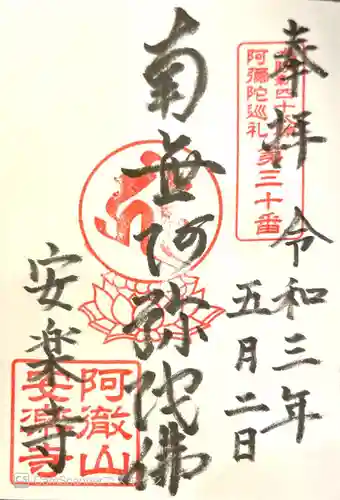 奉拝
令和三年
五月二日
阿彌陀巡礼
第三十番
南無阿弥陀佛
安楽寺
阿徹山
安楽寺
CamScanner